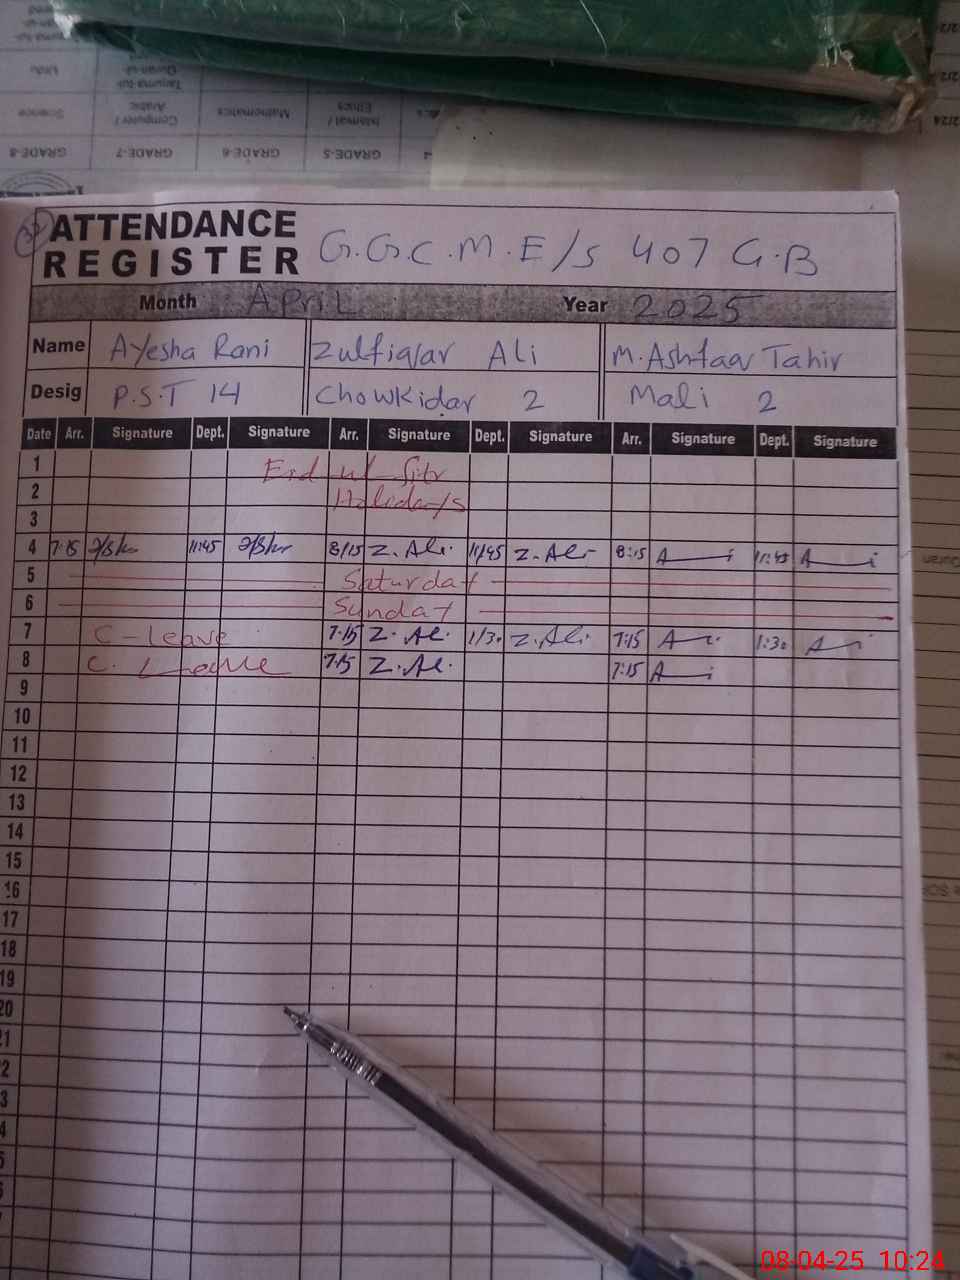 GRADE-8 GRADE-7 GRADE-6 GRADE-5
Science Computer / Arabic Mathematics Islamiat / Ethics
Urdu
ATTENDANCE REGISTER G.G.C.M.E/S 407 G.B
Month April Year 2025
Name Ayesha Rani Zulfiqar Ali M. Ashfaq Tahir
Desig P.S.T 14 Chowkidar 2 Mali 2
Date Arr. Signature Dept. Signature Arr. Signature Dept. Signature Arr. Signature Dept. Signature
1 Eid ul fitr
2 Holidays
3
4 7:15 11:45 8/15 Z. Ali 11/45 Z. Ali 8:15 11:45
5 Saturday
6 Sunday
7 C-leave 7:15 Z. Al. 1/30 Z. Ali 7:15 1:30
8 C. Leave 7:15 Z. Al. 7:15
9
10
11
12
13
14
15
16
17
18
19
20
08-04-25 10:24